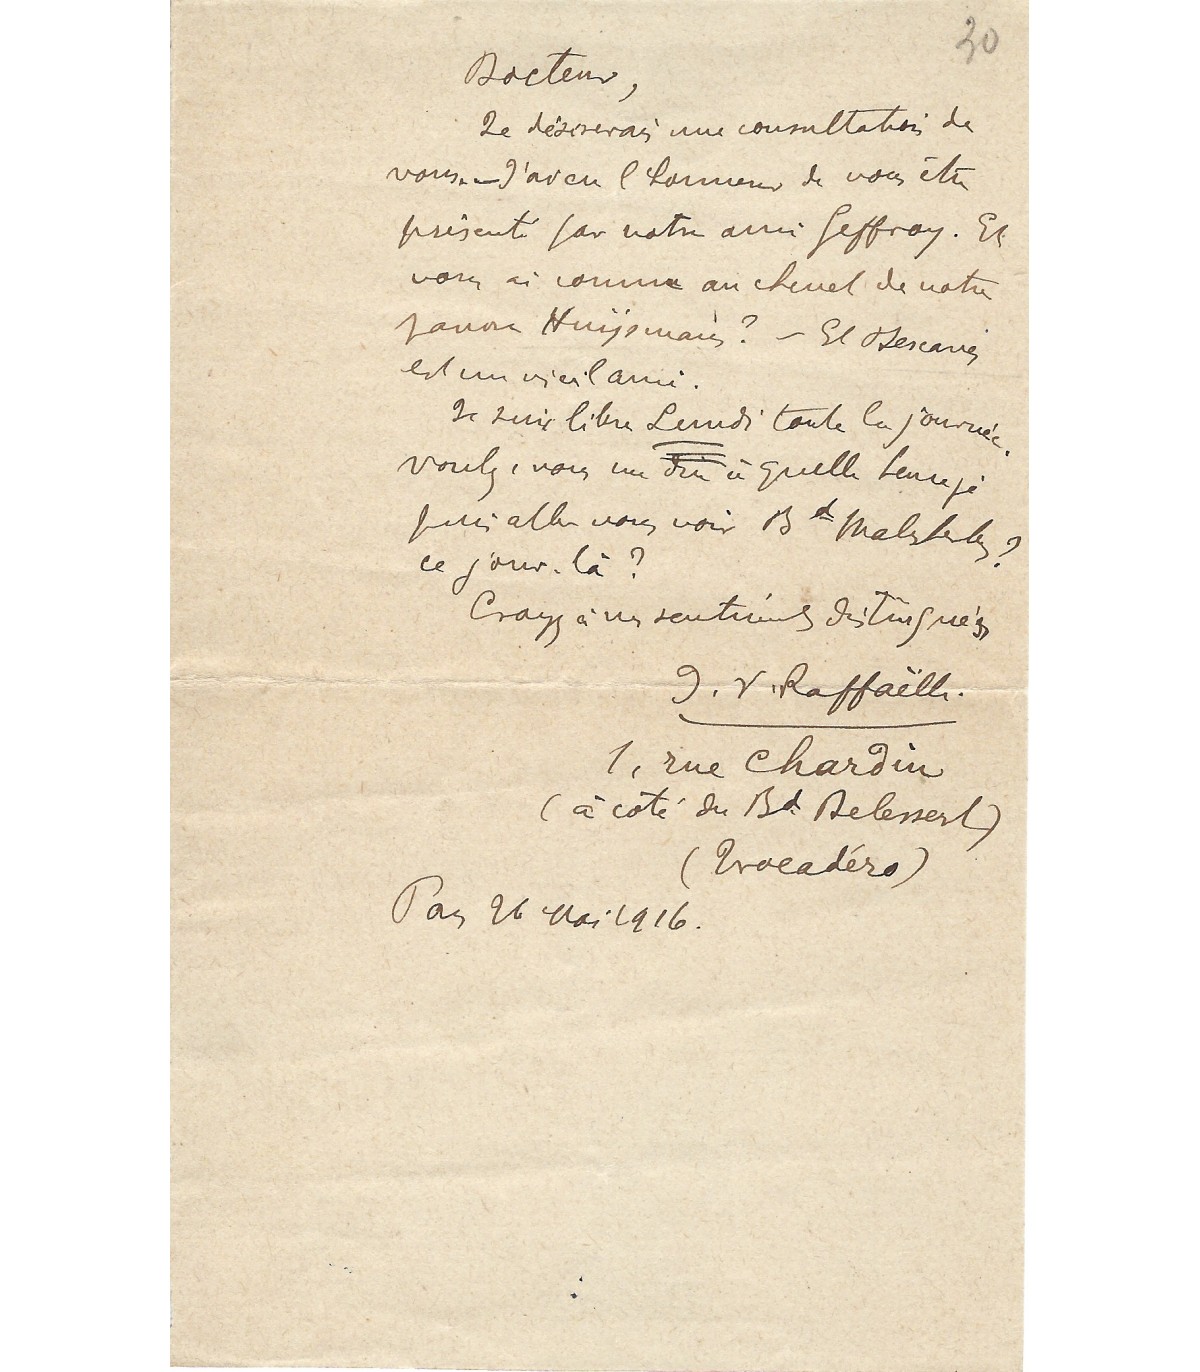 30
Docteur,
Je désirerais une consultation de
vous. — J'ai eu l'honneur de vous être
présenté par notre ami Geffroy. Et
vous ai connu au chevet de notre
pauvre Huÿsmans ? — Et Descaves
est un vieil ami.
Je suis libre Lundi toute la journée.
Voulez-vous me dire à quelle heure je
puis aller vous voir Bd Malesherbes ?
ce jour-là ?
Croyez à mes sentiments distingués
J. F. Raffaëlli.
1, rue Chardin
(à côté du Bd Delessert)
(Trocadéro)
Paris 26 Mai 1916.